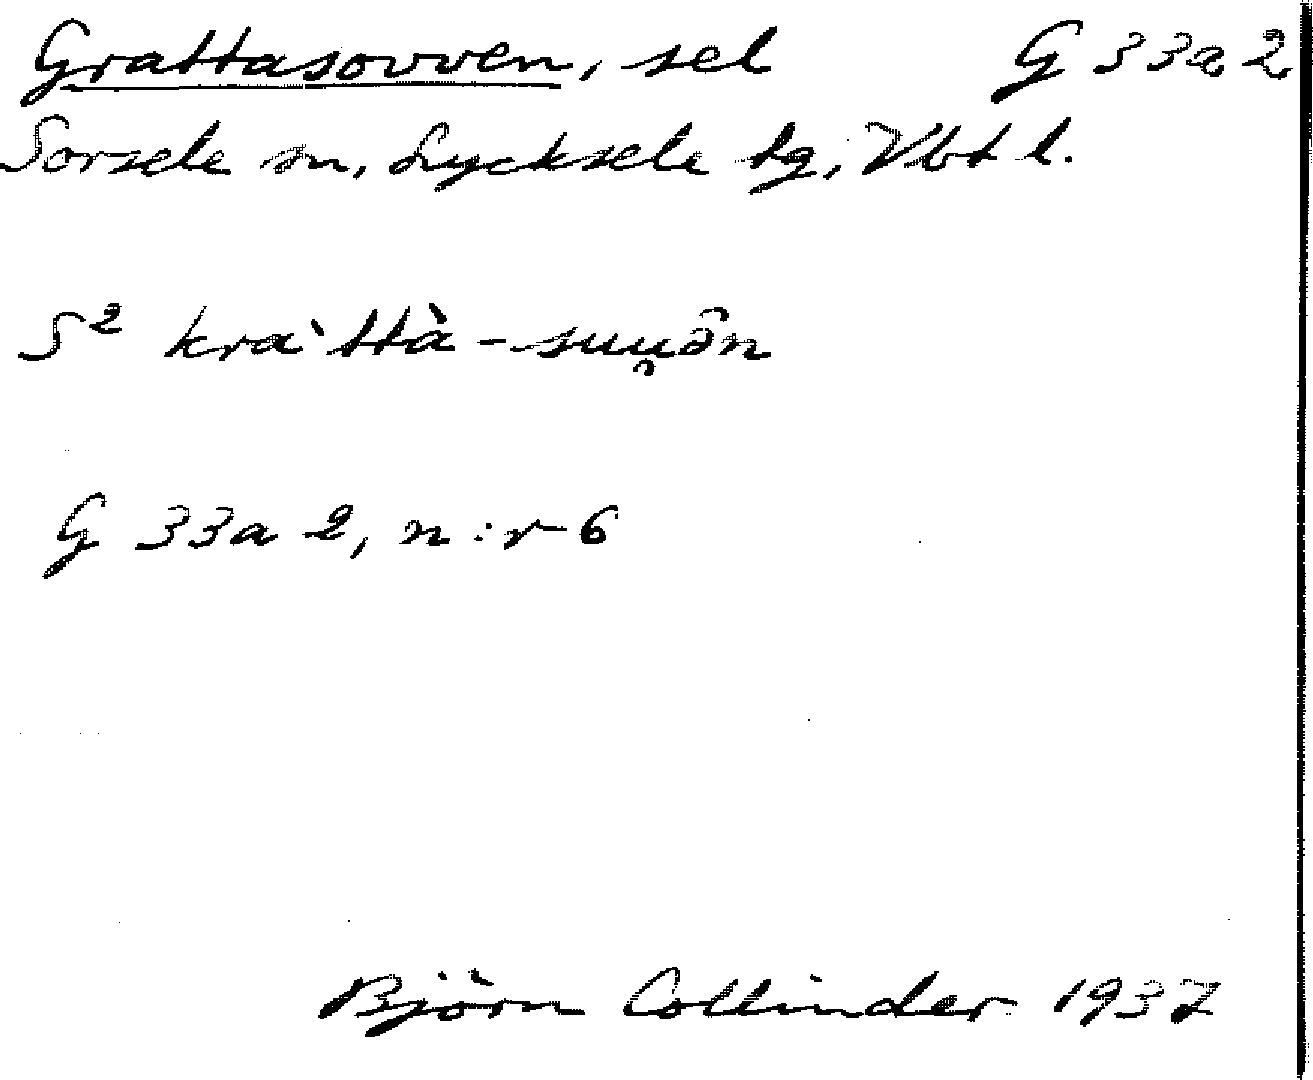 Grattasovven, sel G 33a 2
Sorsele sn, Lycksele tg, Vbt l.
S² kràttà-suu̯ôn
G 33a 2, n:r 6
Björn Collinder 1937